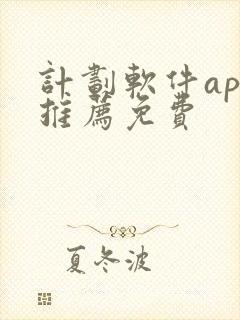 計劃軟件ap
推薦免費
夏冬波